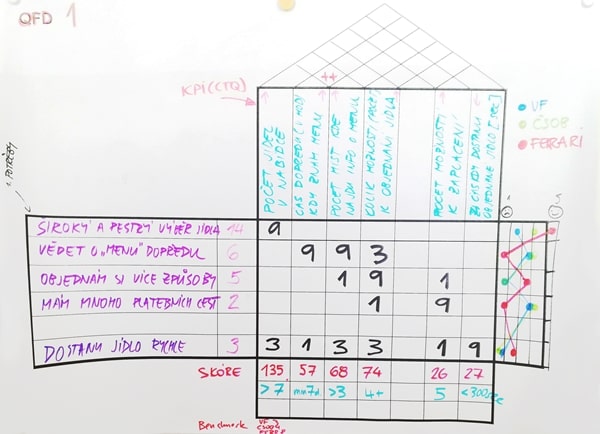 QFD 1
KPI(CTQ)
++
VF
ČSOB
FERARI
POČET JÍDEL
V NABÍDCE
ČAS DOPŘEDU (V HOD)
KDY ZNÁM MENU
POČET MÍST KDE
NAJDU INFO O MENU
KOLIK MOŽNOSTÍ
K OBJEDNÁNÍ JÍDLA
POČET MOŽNOSTÍ
K ZAPLACENÍ
ZA ČAS KDY DOSTANU
OBJEDNANÉ JÍDLO [SEC]
POTŘEBY
ŠIROKÝ A PESTRÝ VÝBĚR JÍDLA 14 9
VĚDĚT O „MENU" DOPŘEDU 6 9 9 3
OBJEDNÁM SI VÍCE ZPŮSOBY 5 1 9 1
MÁM MNOHO PLATEBNÍCH CEST 2 1 9
DOSTANU JÍDLO RYCHLE 3 3 1 3 3 1 9
SKÓRE 135 57 68 74 26 27
>7 >3 4+ 5
Benchmark VF
ČSOB